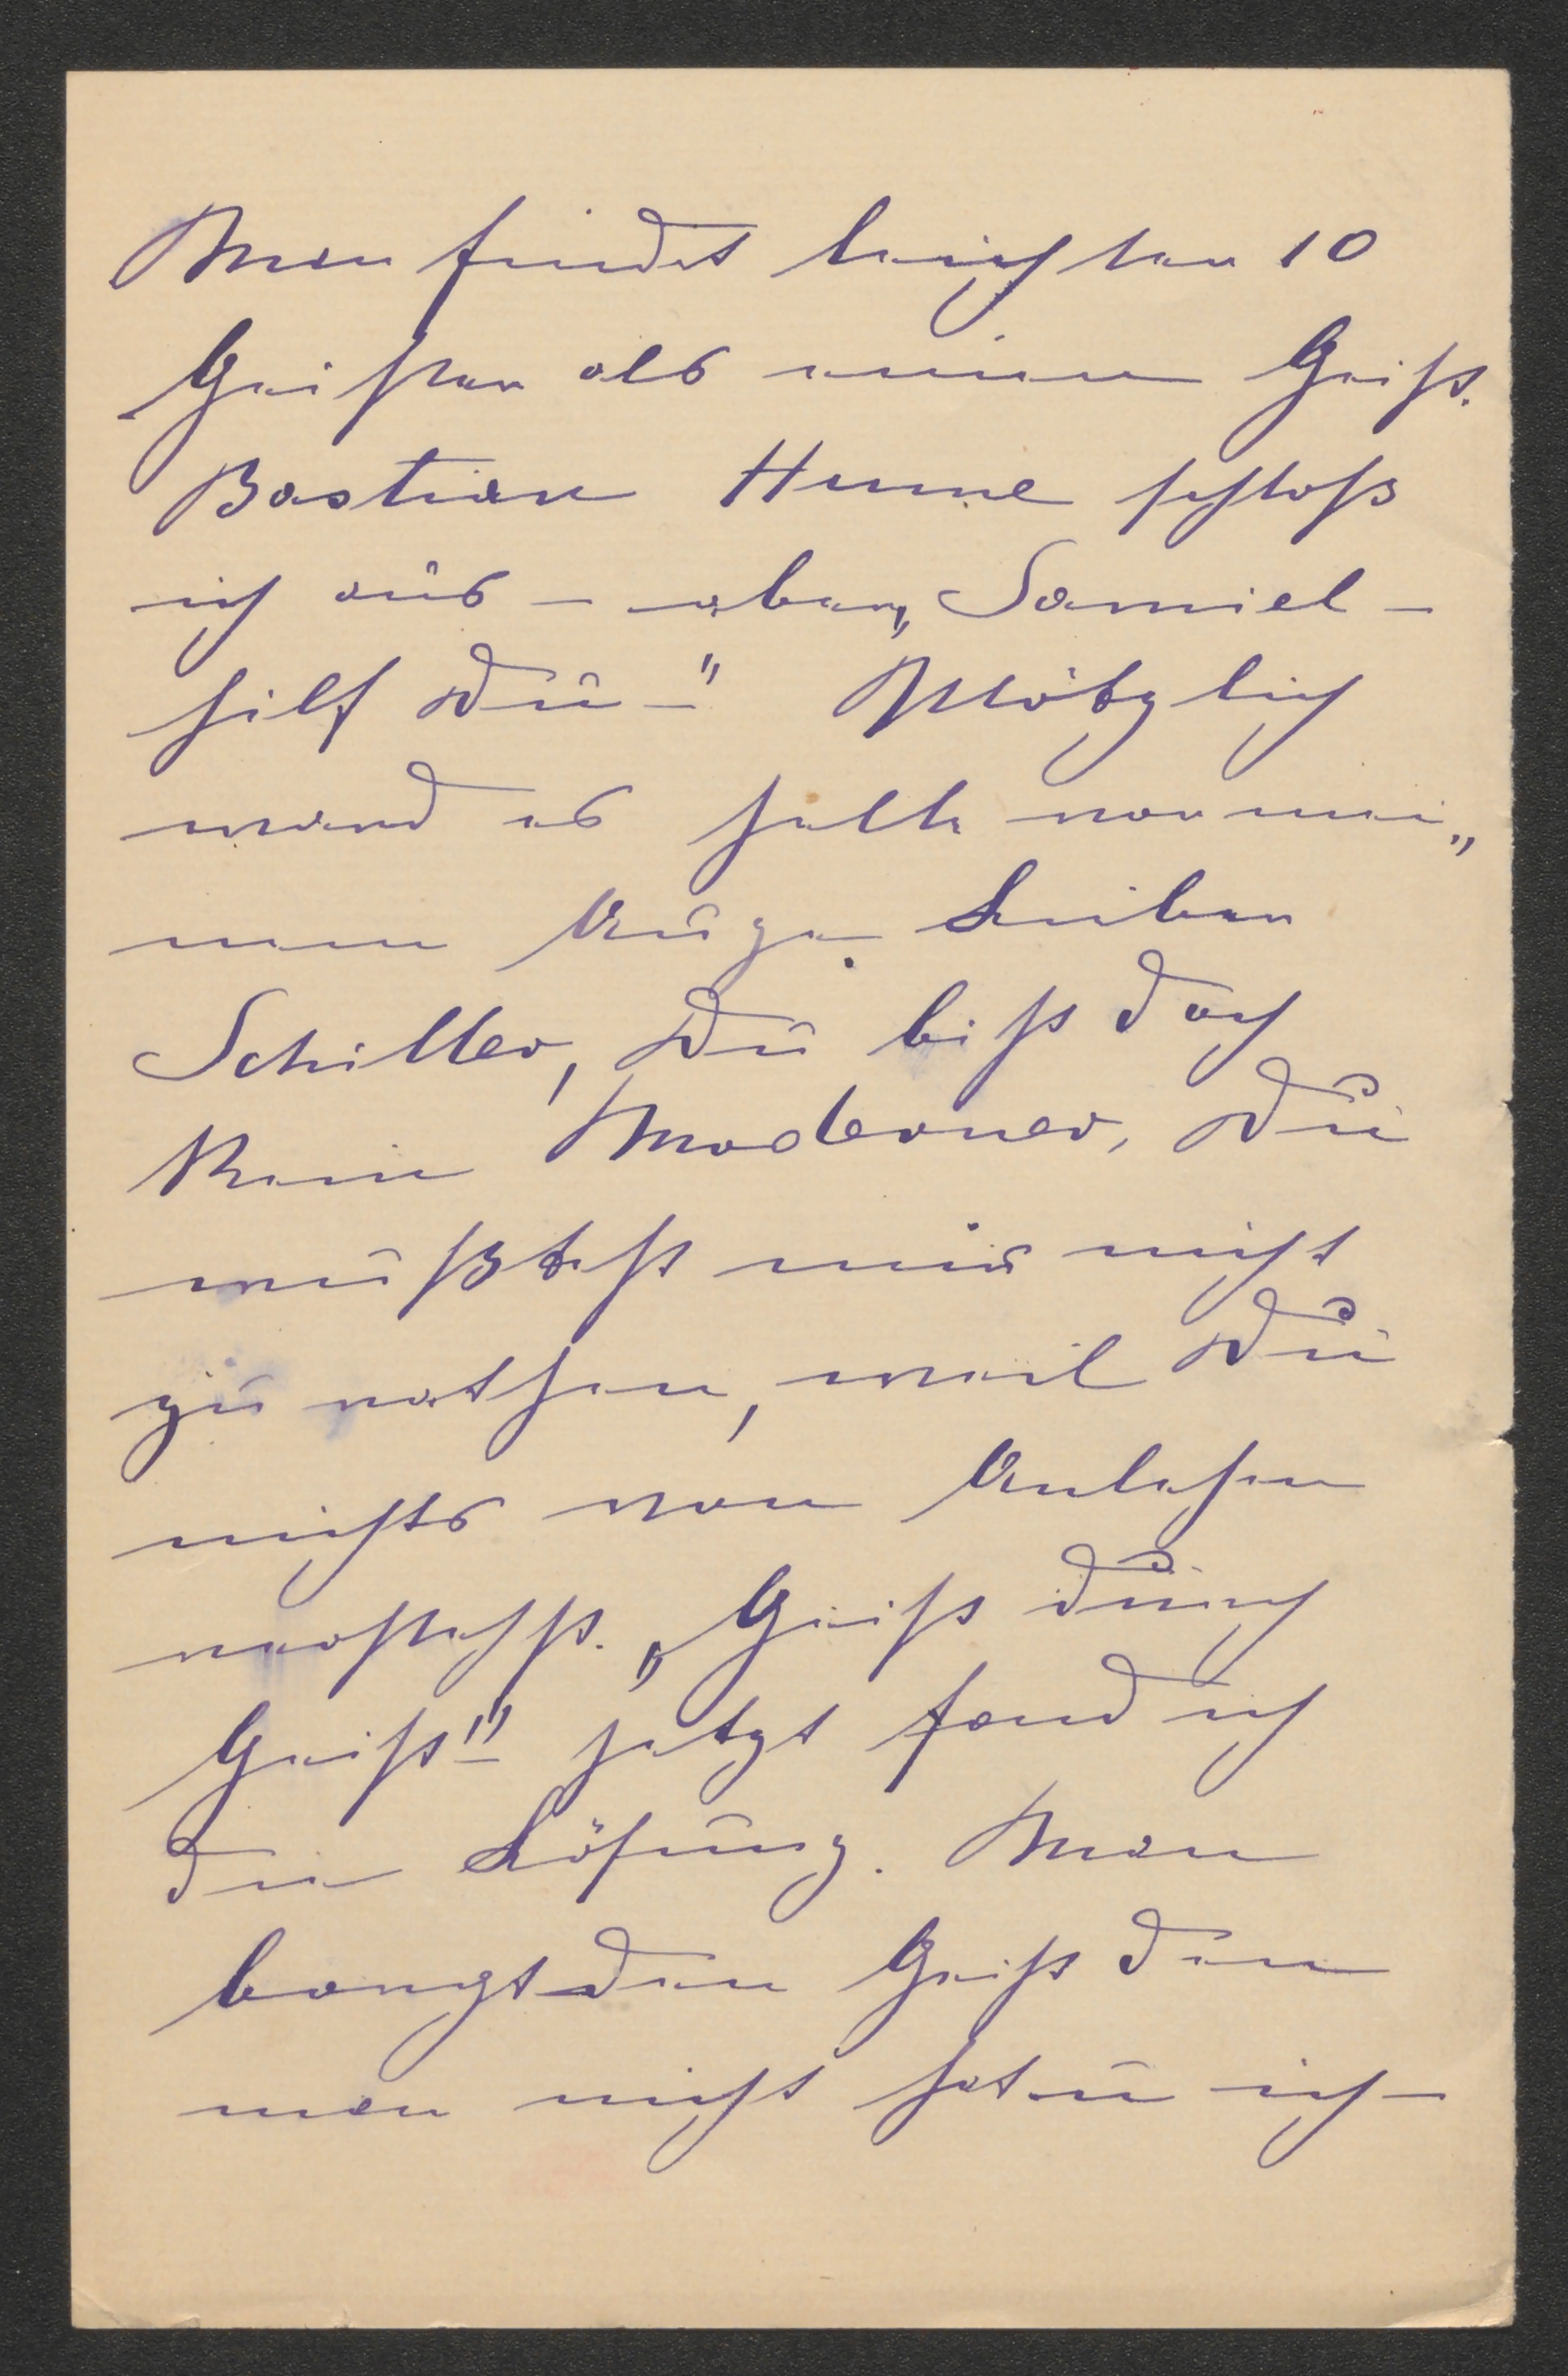 Man findet leichter 10
Geister als einen Geist.
Bastian Hume schloß
ich aus – aber „Samiel –
hilf Du –" Plötzlich
ward es helle vor mei„
nem Auge. Lieber
Schiller, Du bist doch
kein Moderner, Du
wußtest mir nicht
zu rathen, weil Du
nichts von Anlehen
verstehst. „Geist durch
Geist" – jetzt fand ich
die Lösung. Man
borgt den Geist den
man nicht hat u ich –